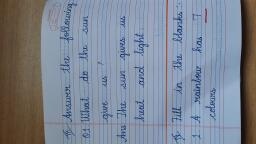 Answer the following
Q1 What do the sun
give us?
Ans The sun gives us
heat and light
Fill in the blanks:
1 A rainbow has 7
colours